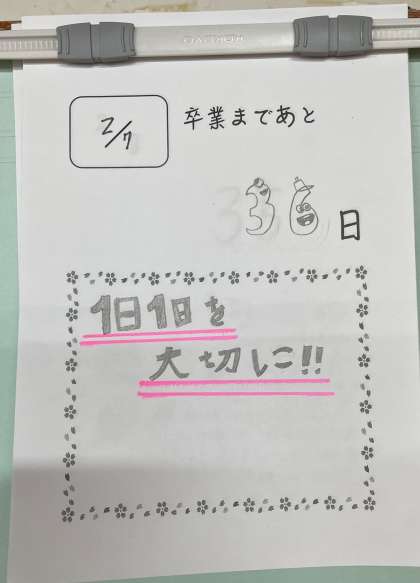 2/7
卒業まであと
36日
1日1日を
大切に!!